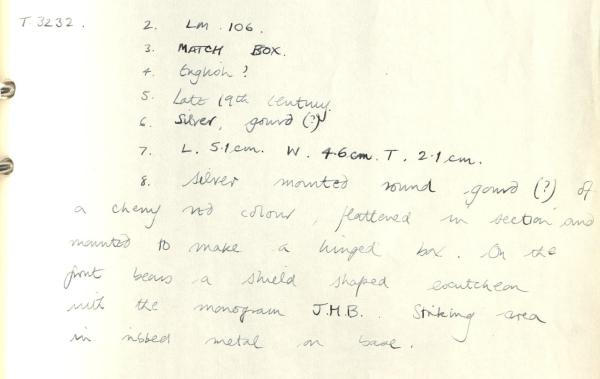 T.3232. 2. LM .106.
3. MATCH BOX.
4. English ?
5. Late 19th century.
6. Silver, gourd (?)
7. L. 5.1cm. W. 4.6cm. T. 2.1cm.
8. Silver mounted round gourd (?) of
a cherry red colour, flattened in section and
mounted to make a hinged box. On the
front bears a shield shaped escutcheon
with the monogram J.H.B. Striking area
in ribbed metal on base.